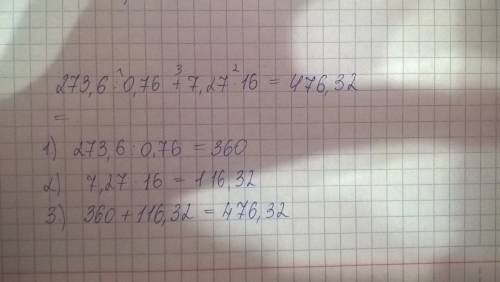 273,6 : 0,76 + 7,27 · 16 = 476,32
=
1) 273,6 : 0,76 = 360
2) 7,27 · 16 = 116,32
3) 360 + 116,32 = 476,32